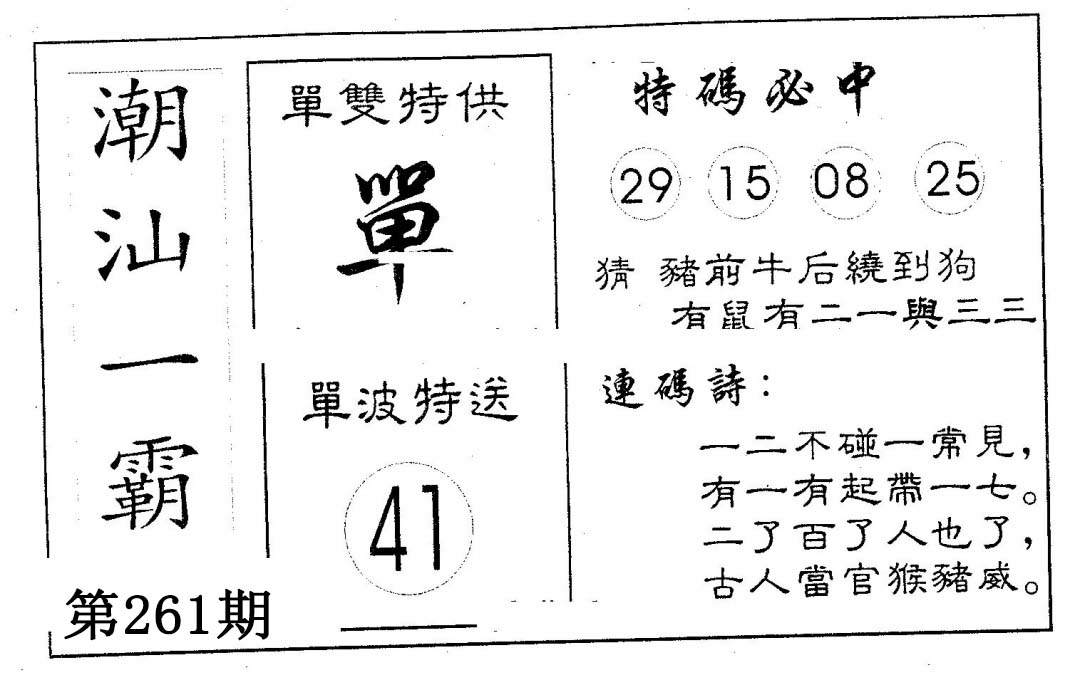 潮汕一霸
第261期
單雙特供
單
單波特送
41
特碼必中
29 15 08 25
猜 豬前牛后繞到狗
有鼠有二一與三三
連碼詩：
一二不碰一常見，
有一有起帶一七。
二了百了人也了，
古人當官猴豬威。